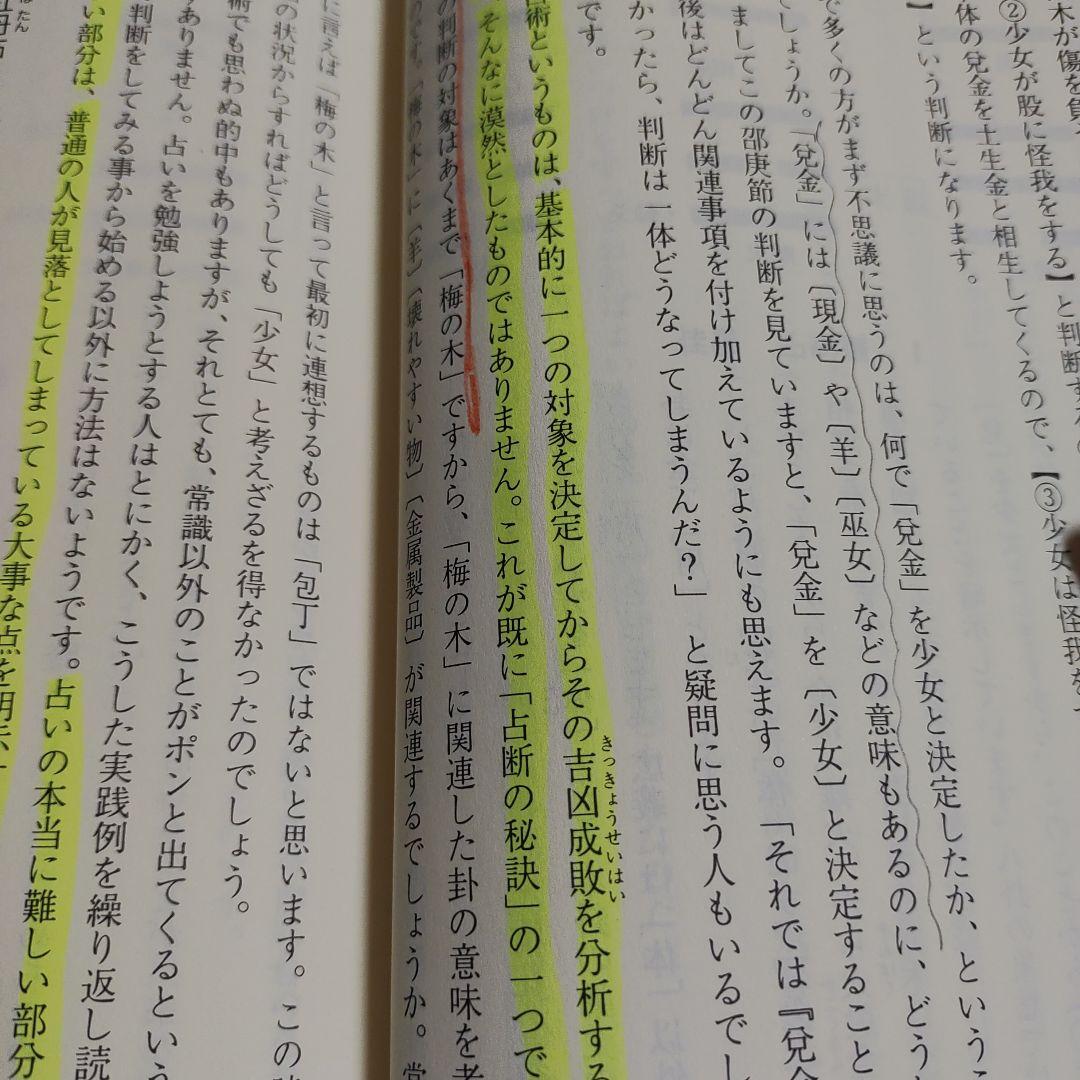 木が傷を負
②少女が股に怪我をする】と判断する。
体の兌金を土生金と相生してくるので、【③少女は怪我を
】という判断になります。
で多くの方がまず不思議に思うのは、何で「兌金」を少女と決定したか、という
でしょうか。「兌金」には〔現金〕や〔羊〕〔巫女〕などの意味もあるのに、どう
ましてこの邵康節の判断を見ていますと、「兌金」を〔少女〕と決定すること
後はどんどん関連事項を付け加えているようにも思えます。「それでは『兌金
かったら、判断は一体どうなってしまうんだ？」と疑問に思う人もいるでし
です。
占術というものは、基本的に一つの対象を決定してからその吉凶成敗を分析する
きっきょうせいはい
そんなに漠然としたものではありません。これが既に「占断の秘訣」の一つで
の判断の対象はあくまで「梅の木」ですから、「梅の木」に関連した卦の意味を考
のです。「梅の木」に〔羊〕〔壊れやすい物〕〔金属製品〕が関連するでしょうか。常
に言えば「梅の木」と言って最初に連想するものは「包丁」ではないと思います。この
の状況からすればどうしても「少女」と考えざるを得なかったのでしょう。
術でも思わぬ的中もありますが、それとても、常識以外のことがポンと出てくるという
ありません。占いを勉強しようとする人はとにかく、こうした実践例を繰り返し読
判断をしてみる事から始める以外に方法はないようです。占いの本当に難しい部分
い部分は、普通の人が見落としてしまっている大事な点を
ぼたん